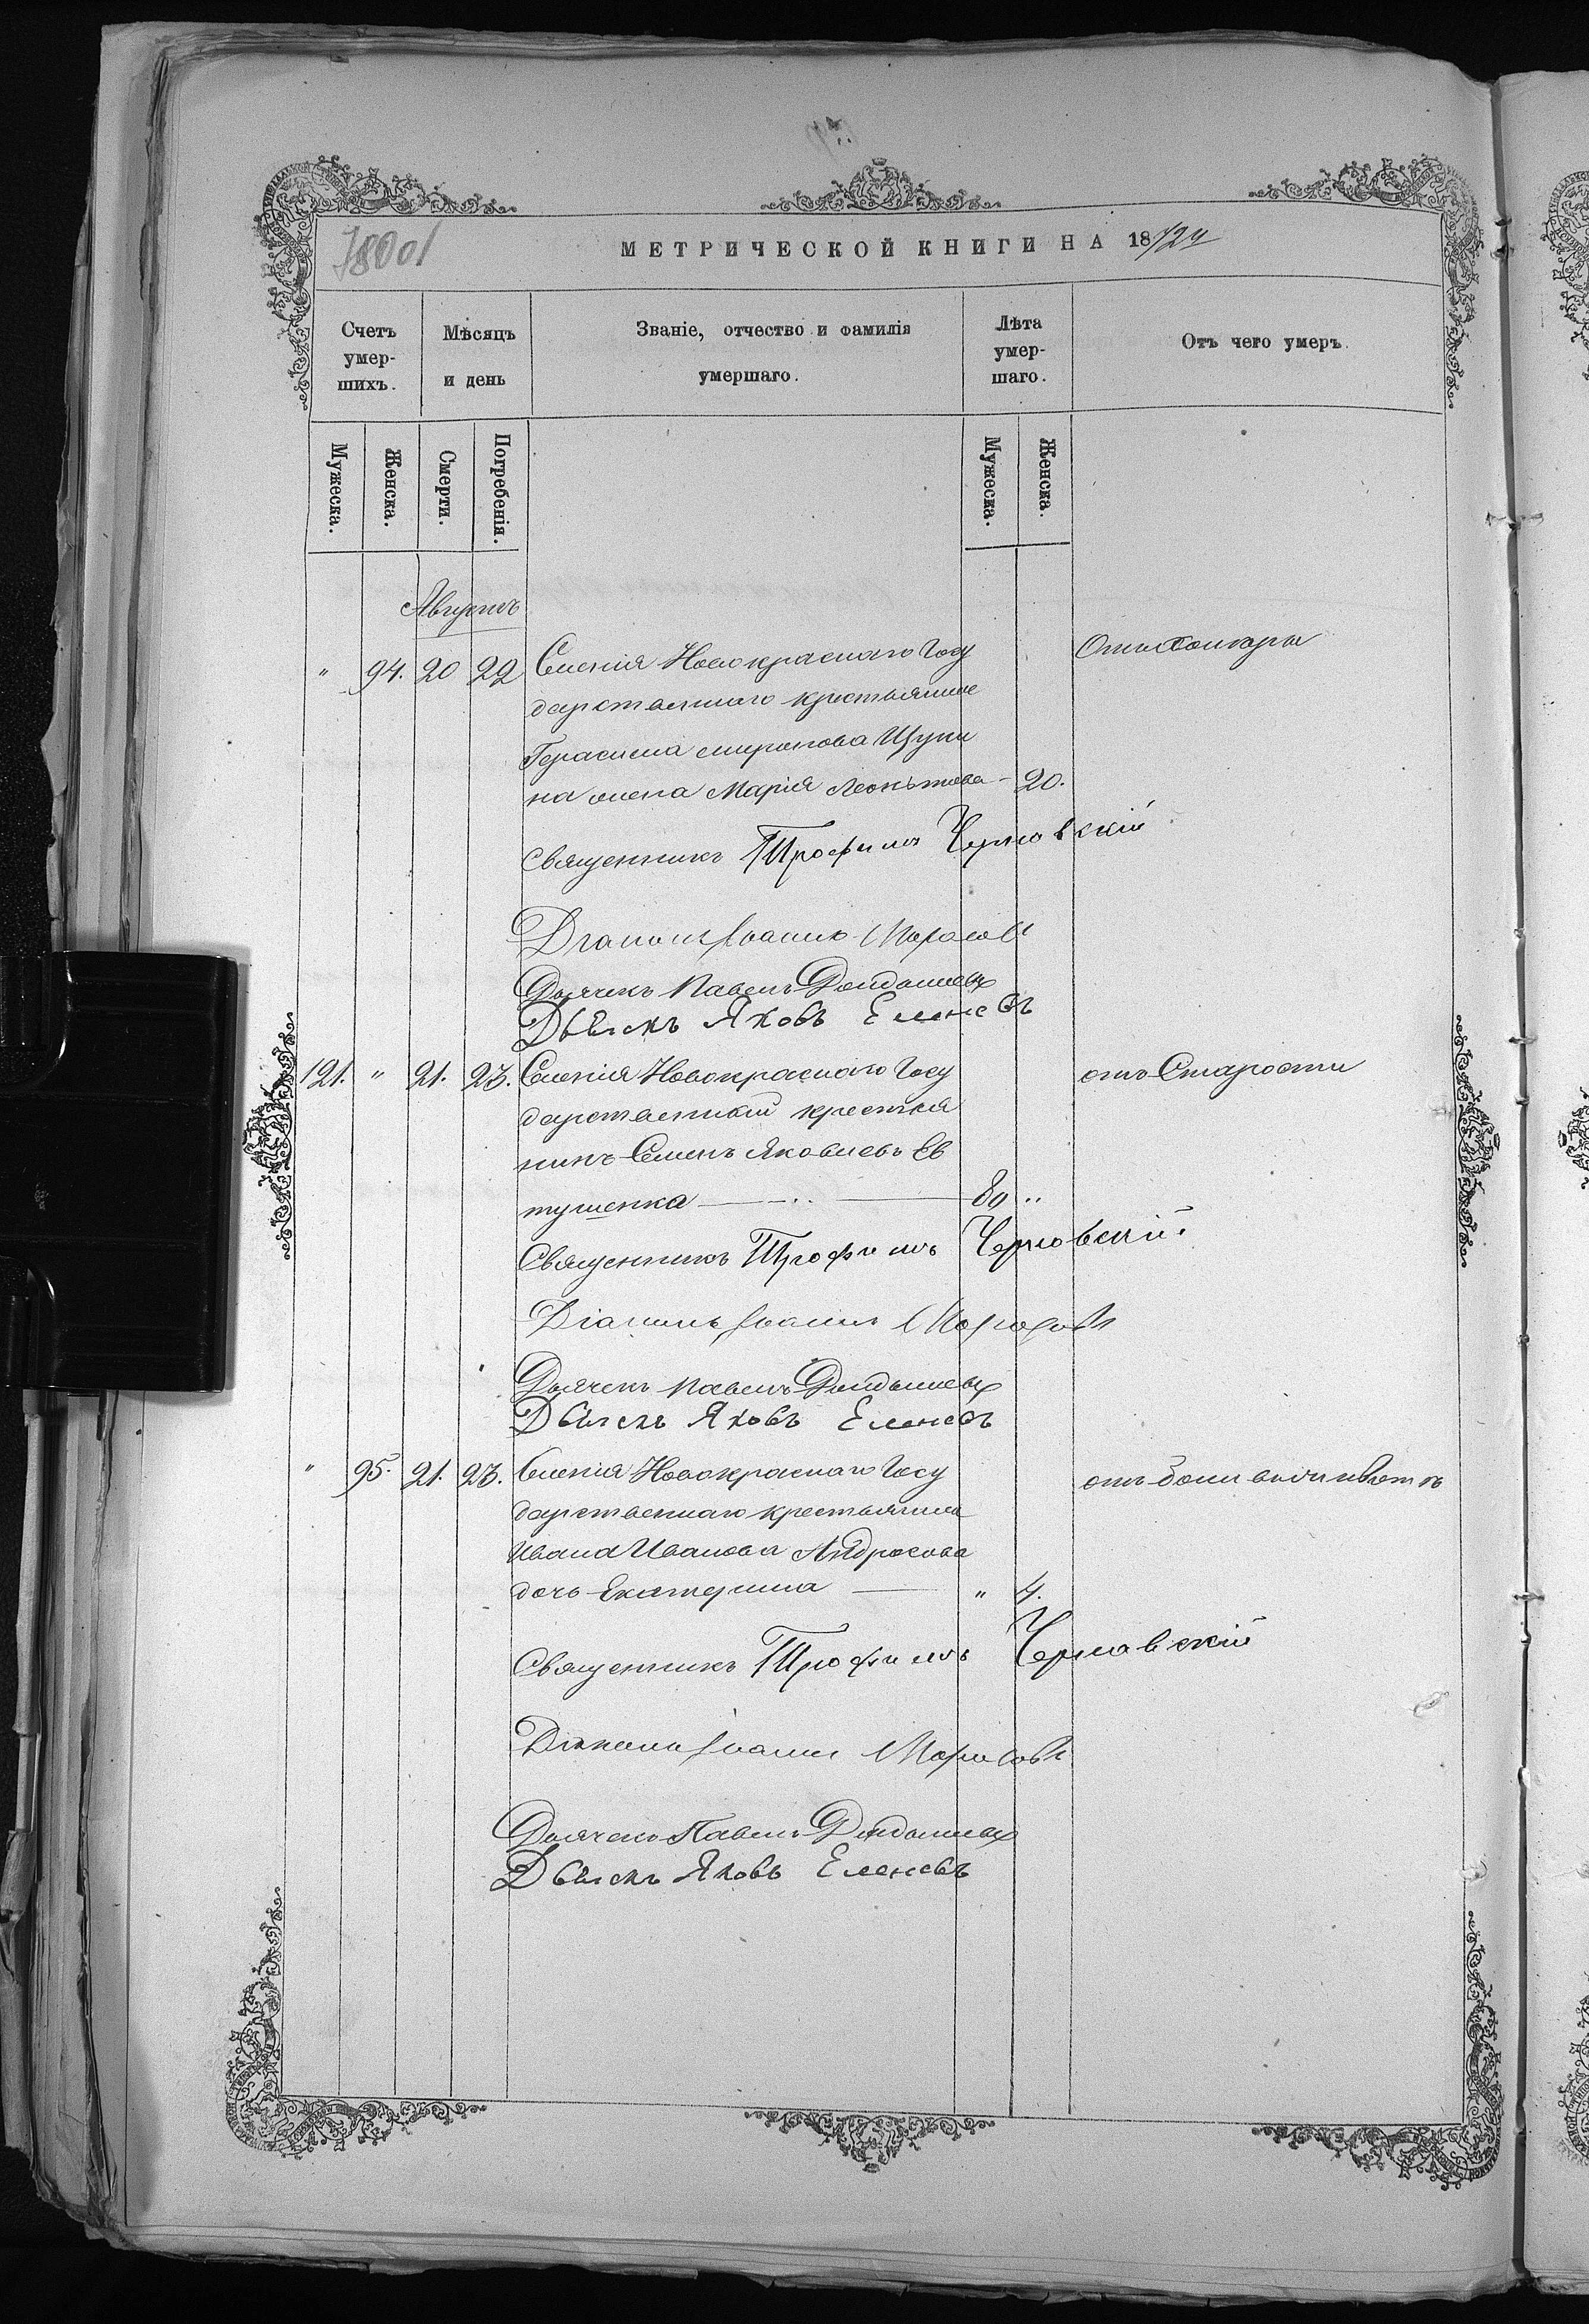 МЕТРИЧЕСКОЙ КНИГИ НА 1872 г
Счетъ умершихъ.
Мѣсяцъ и день
Званіе, отчество и фамилія умершаго.
Лѣта умершаго.
Отъ чего умеръ.
Мужеска.
Женска.
Смерти.
Погребенія.
Мужеска.
Женска.
Августъ
" 94. 20 22 Селенія Новокраснаго Госу
дарственнаго крестьянина
Герасима Миронова Щупи
на жена Марія Леонтьева - 20.
Отъ Холеры
Священникъ Трофимъ Черновскій
Діаконъ Іоаннъ Морозовъ
Дьячекъ Павелъ
Дьячекъ Яковъ Еленевъ
121. " 21. 23. Селенія Новокраснаго Госу
дарственный крестья
нинъ Семенъ Яковлевъ Ев
тушенка 80 "
отъ Старости
Священникъ Трофимъ Черновскій.
Діаконъ Іоаннъ Морозовъ
Дьячекъ Павелъ
Дьячекъ Яковъ Еленевъ
" 95. 21. 23. Селенія Новокраснаго Госу
дарственнаго крестьянина
Ивана Иванова Андросова
дочь Екатерина " 4.
отъ боли въ животѣ
Священникъ Трофимъ Черновскій
Діаконъ Іоаннъ Морозовъ
Дьячекъ Павелъ
Дьячекъ Яковъ Еленевъ